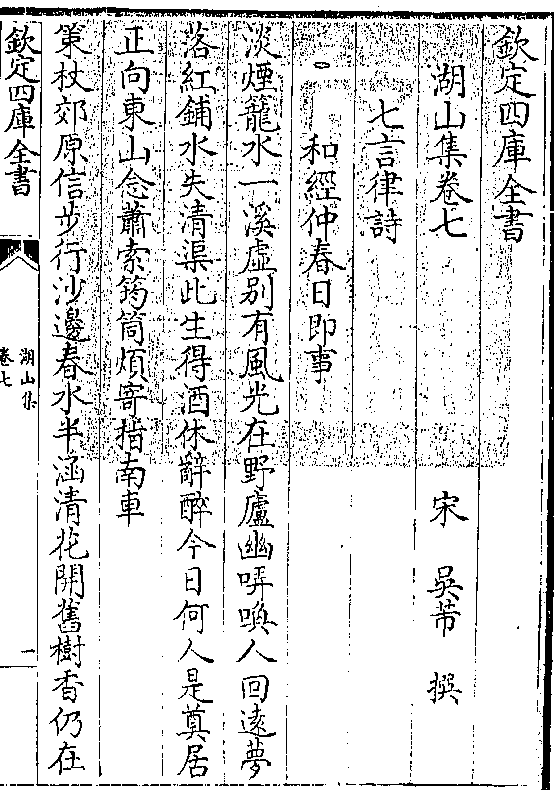 欽定四庫全書
湖山集卷七
宋 吳芾 撰
七言律詩
和經仲春日即事
淡煙籠水一溪虛别有風光在野廬幽哢喚人回遠夢
落紅鋪水失清渠此生得酒休辭醉今日何人是奠居
正向東山念蕭索筠筒煩寄指南車
策杖郊原信步行沙邊春水半涵清花開舊樹香仍在
欽定四庫全書
湖山集
卷七
一